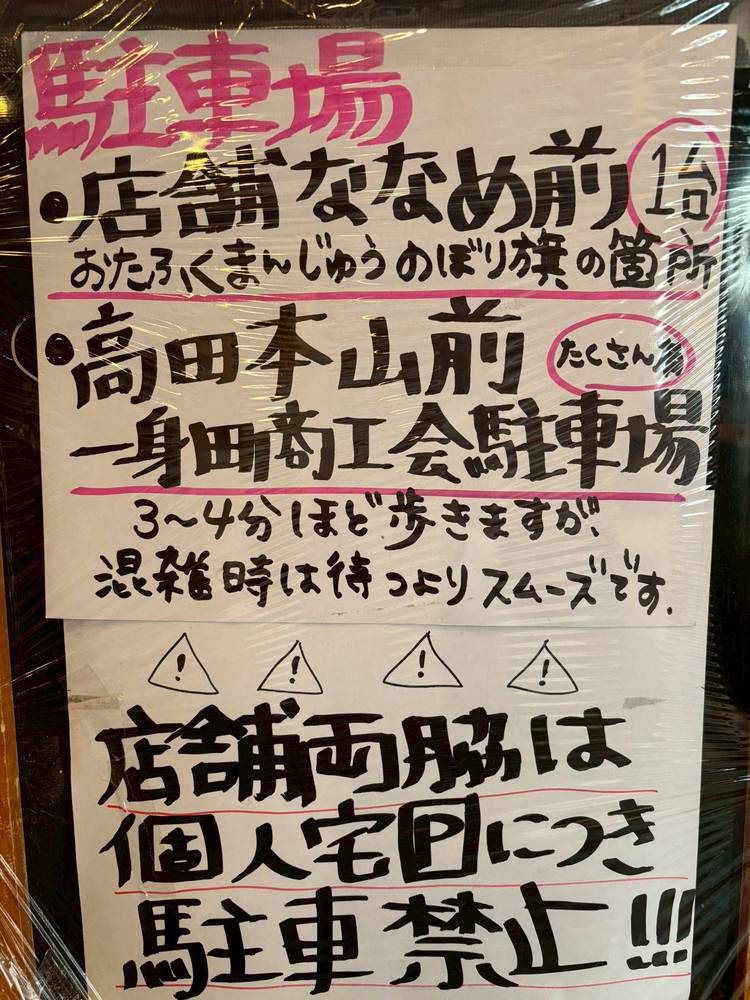 駐車場
・店舗ななめ前 1台
おたふくまんじゅうのぼり旗の箇所
・高田本山前 たくさん有
一身田商工会駐車場
3〜4分ほど歩きますが、
混雑時は待つよりスムーズです.
! ! ! !
店舗両脇は
個人宅Pにつき
駐車禁止!!!